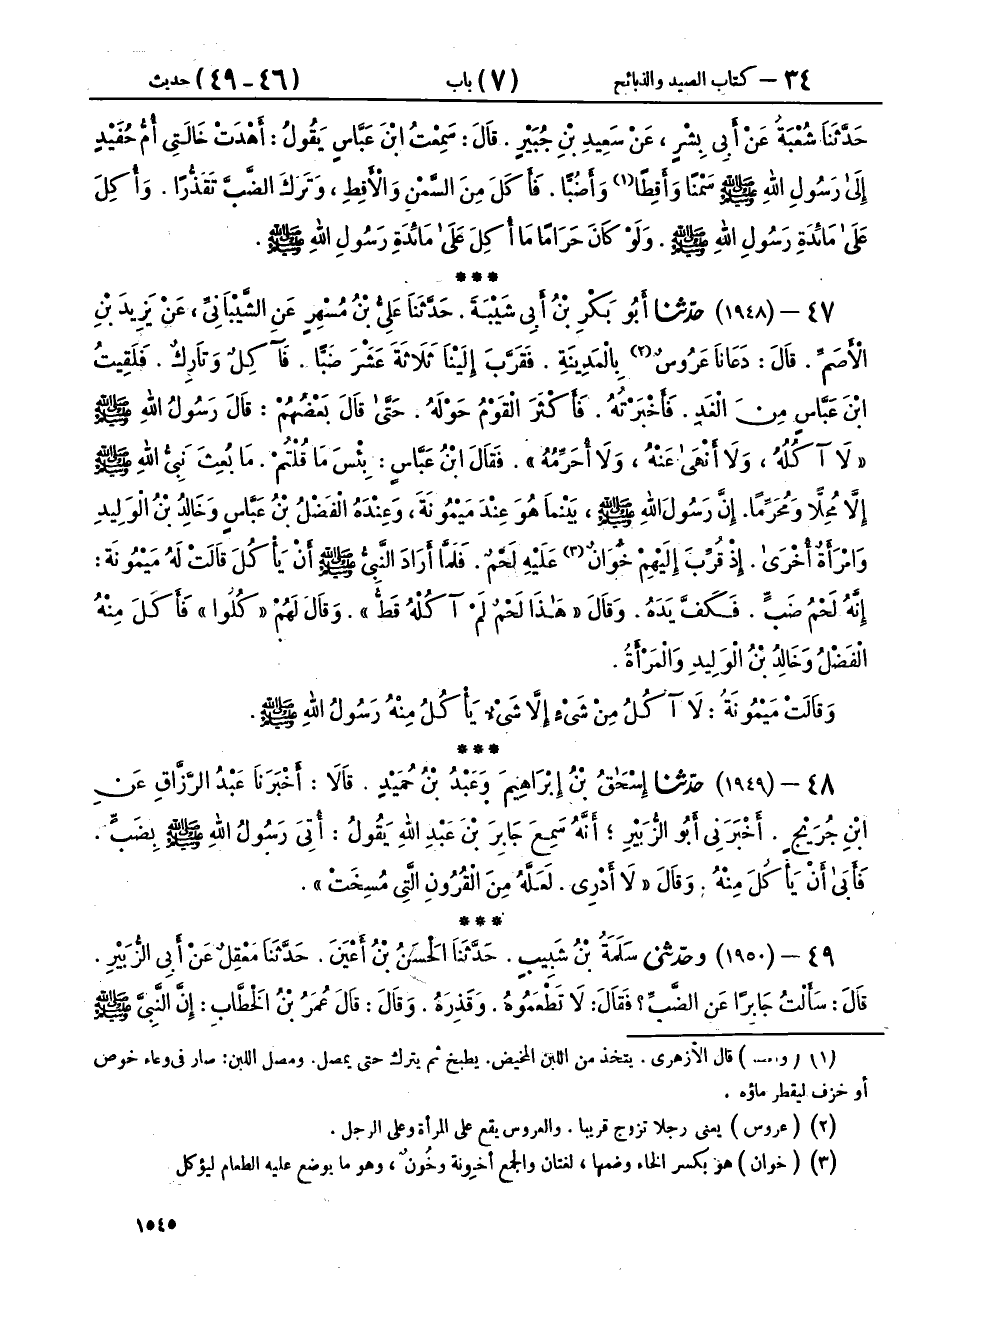 ٣٤ – كتاب الصيد والذبائح (٧) باب (٤٦ - ٤٩) حديث
حَدَّثَنَا شُعْبَةُ عَنْ أَبِي بِشْرٍ ، عَنْ سَعِيدِ بْنِ جُبَيْرٍ . قَالَ : سَمِعْتُ ابْنَ عَبَّاسٍ يَقُولُ : أَهْدَتْ خَالَتِي أُمُّ حُفَيْدٍ
إِلَىٰ رَسُولِ اللهِ ﷺ سَمْنًا وَأَقِطًا(١) وَأَضُبًّا . فَأَكَلَ مِنَ السَّمْنِ وَالْأَقِطِ ، وَتَرَكَ الضَّبَّ تَقَذُّرًا . وَأُكِلَ
عَلَىٰ مَائِدَةِ رَسُولِ اللهِ ﷺ . وَلَوْ كَانَ حَرَامًا مَا أُكِلَ عَلَىٰ مَائِدَةِ رَسُولِ اللهِ ﷺ .
***
٤٧ – (١٩٤٨) حَدَّثَنَا أَبُو بَكْرِ بْنُ أَبِي شَيْبَةَ . حَدَّثَنَا عَلِيُّ بْنُ مُسْهِرٍ عَنِ الشَّيْبَانِيِّ ، عَنْ يَزِيدَ بْنِ
الْأَصَمِّ . قَالَ : دَعَانَا عَرُوسٌ(٢) بِالْمَدِينَةِ . فَقَرَّبَ إِلَيْنَا ثَلَاثَةَ عَشَرَ ضَبًّا . فَآكِلٌ وَتَارِكٌ . فَلَقِيتُ
ابْنَ عَبَّاسٍ مِنَ الْغَدِ . فَأَخْبَرْتُهُ . فَأَكْثَرَ الْقَوْمُ حَوْلَهُ . حَتَّىٰ قَالَ بَعْضُهُمْ : قَالَ رَسُولُ اللهِ ﷺ
« لَا آكُلُهُ ، وَلَا أَنْهَىٰ عَنْهُ ، وَلَا أُحَرِّمُهُ » . فَقَالَ ابْنُ عَبَّاسٍ : بِئْسَ مَا قُلْتُمْ . مَا بُعِثَ نَبِيُّ اللهِ ﷺ
إِلَّا مُحِلًّا وَمُحَرِّمًا. إِنَّ رَسُولَ اللهِ ﷺ ، بَيْنَمَا هُوَ عِنْدَ مَيْمُونَةَ ، وَعِنْدَهُ الْفَضْلُ بْنُ عَبَّاسٍ وَخَالِدُ بْنُ الْوَلِيدِ
وَامْرَأَةٌ أُخْرَىٰ . إِذْ قُرِّبَ إِلَيْهِمْ خُوَانٌ(٣) عَلَيْهِ لَحْمٌ . فَلَمَّا أَرَادَ النَّبِيُّ ﷺ أَنْ يَأْكُلَ قَالَتْ لَهُ مَيْمُونَةُ :
إِنَّهُ لَحْمُ ضَبٍّ . فَكَفَّ يَدَهُ . وَقَالَ « هَٰذَا لَحْمٌ لَمْ آكُلْهُ قَطُّ » . وَقَالَ لَهُمْ « كُلُوا » فَأَكَلَ مِنْهُ
الْفَضْلُ وَخَالِدُ بْنُ الْوَلِيدِ وَالْمَرْأَةُ .
وَقَالَتْ مَيْمُونَةُ : لَا آكُلُ مِنْ شَيْءٍ إِلَّا شَيْءٌ يَأْكُلُ مِنْهُ رَسُولُ اللهِ ﷺ .
***
٤٨ – (١٩٤٩) حَدَّثَنَا إِسْحَٰقُ بْنُ إِبْرَاهِيمَ وَعَبْدُ بْنُ حُمَيْدٍ . قَالَا : أَخْبَرَنَا عَبْدُ الرَّزَّاقِ عَنِ
ابْنِ جُرَيْجٍ . أَخْبَرَنِي أَبُو الزُّبَيْرِ ؛ أَنَّهُ سَمِعَ جَابِرَ بْنَ عَبْدِ اللهِ يَقُولُ : أُتِيَ رَسُولُ اللهِ ﷺ بِضَبٍّ .
فَأَبَىٰ أَنْ يَأْكُلَ مِنْهُ . وَقَالَ « لَا أَدْرِي . لَعَلَّهُ مِنَ الْقُرُونِ الَّتِي مُسِخَتْ » .
***
٤٩ – (١٩٥٠) وَحَدَّثَنِي سَلَمَةُ بْنُ شَبِيبٍ . حَدَّثَنَا الْحَسَنُ بْنُ أَعْيَنَ . حَدَّثَنَا مَعْقِلٌ عَنْ أَبِي الزُّبَيْرِ .
قَالَ : سَأَلْتُ جَابِرًا عَنِ الضَّبِّ ؟ فَقَالَ : لَا تَطْعَمُوهُ . وَقَذِرَهُ . وَقَالَ : قَالَ عُمَرُ بْنُ الْخَطَّابِ : إِنَّ النَّبِيَّ ﷺ
(١) قال الأزهرى . يتخذ من اللبن المخيض. يطبخ ثم يترك حتى يمصل. ومصل اللبن: صار فى وعاء خوص
أو خزف ليقطر ماؤه .
(٢) ( عروس ) يعنى رجلا تزوج قريبا . والعروس يقع على المرأة وعلى الرجل .
(٣) ( خوان ) هو بكسر الخاء وضمها ، لغتان والجمع أخونة وخُونٌ ، وهو ما يوضع عليه الطعام ليؤكل
١٥٤٥